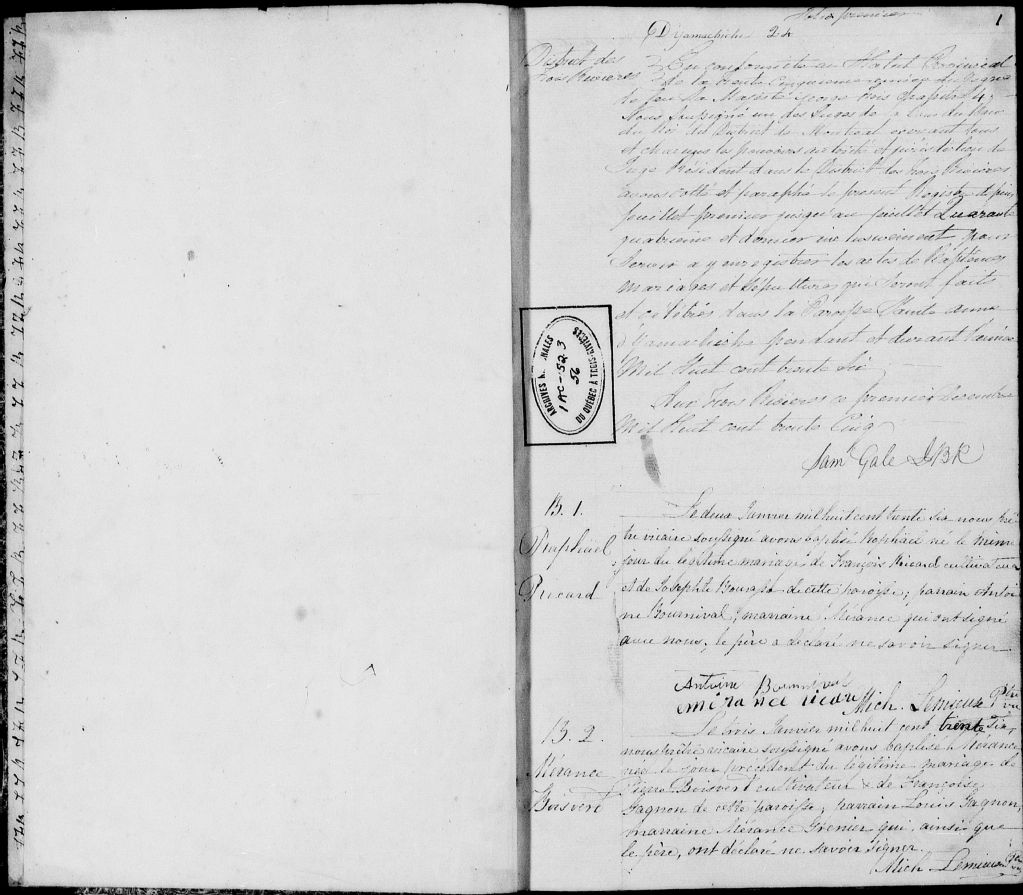 folio premier 1
D'Yamachiche 24
District des
Trois Rivières
En conformité au Statut Provincial
de la trente cinquieme année du Regne
de feu Sa Majesté George trois chapitre 4
Nous Soussigné un des Juges de la Cour du Banc
du Roi du District de Montreal exerçant tous
et chacuns les pouvoirs autorité et jurisdiction de
Juge Résident dans le District des Trois Rivieres
avons cotté et paraphé le present Registre depuis
feuillet premier jusqu'au feuillet Quarante
quatrieme et dernier inclusivement pour
Servir a y enregistrer les actes de Baptêmes
mariages et Sépultures qui seront faits
et célébrés dans la Paroisse Sainte Anne
d'Yamachiche pendant et durant l'année
Mil Huit cent trente Six
Aux Trois Rivieres ce premier Decembre
Mil Huit cent trente Cinq
Sam Gale JBR
ARCHIVES NATIONALES
DU QUÉBEC À TROIS-RIVIÈRES
1AC-523
56
B. 1.
Raphaël
Ricard
Le deux Janvier mil huit cent trente six nous prê
tre vicaire soussigné avons baptisé Raphael né le même
jour du légitime mariage de François Ricard cultivateur
et de Josephte Bourassa de cette paroisse; parrain Antoi
ne Bournival, marraine Mérance qui ont signé
avec nous; le père a déclaré ne savoir signer.
Antoine Bournival
mérance ricard Mich. Lemieux Ptre
B. 2.
Mérance
Boisvert
Le trois Janvier mil huit cent trente six,
nous prêtre vicaire soussigné avons baptisé Mérance
née le jour précédent du légitime mariage de
Pierre Boisvert cultivateur & de Françoise
Gagnon de cette paroisse; parrain Louis Gagnon,
marraine Mérance Grenier qui, ainsi que
le père, ont déclaré ne savoir signer
Mich Lemieux